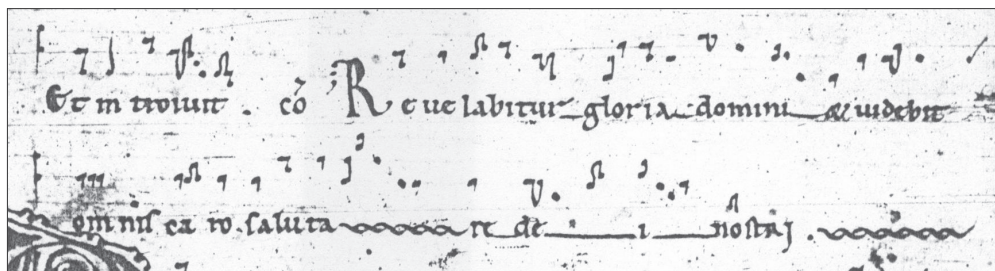 Et in troiuit . cō Re ue labitur gloria domini & uidebit
omnis ca ro . saluta re de i nostri .